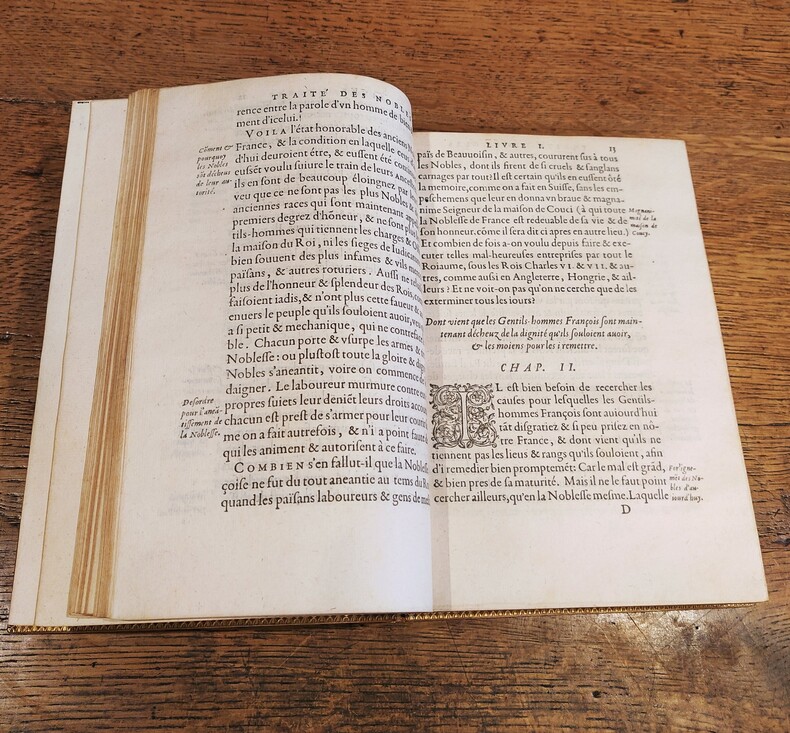 TRAITÉ DES NOBLES
rence entre la parole d'vn homme de bien
ment d'icelui.!
VOILA l'état honorable des anciens
France, & la condition en laquelle ceux
d'hui deuroient étre, & eussent été
eussét voulu suiure le train de leurs
ils en sont de beaucoup éloingnez par
veu que ce ne sont pas les plus Nobles &
anciennes races qui sont maintenant
premiers degrez d'hõneur, & ne sont plus
tils-hommes qui tiennent les charges &
la maison du Roi, ni les sieges de
bien souuent des plus infames & vils
païsans, & autres roturiers. Aussi ne
plus de l'honneur & splendeur des Rois,
faisoient iadis, & n'ont plus cette faueur &
enuers le peuple qu'ils souloient auoir,
a si petit & mechanique, qui ne
ble. Chacun porte & vsurpe les armes &
Noblesse: ou plustost toute la gloire &
Nobles s'aneantit, voire on commence
daigner. Le laboureur murmure contre
propres suiets leur deniét leurs droits
chacun est prest de s'armer pour leur
me on a fait autrefois, & n'i a point faute
qui les animent & autorisent à ce faire.
COMBIEN s'en fallut-il que la
çoise ne fut du tout aneantie au tems du
quand les païsans laboureurs & gens de
Cõment &
pourquoy
les Nobles
sõt décheus
de leur au-
torité.
Desordre
pour l'aneã-
tissement de
la Noblesse.
LIVRE I. 13
païs de Beauuoisin, & autres, coururent sus à tous
les Nobles, dont ils firent de si cruels & sanglans
carnages par tout? Il est certain qu'ils en eussent ôté
la memoire, comme on a fait en Suisse, sans les em-
peschemens que leur en donna vn braue & magna-
nime Seigneur de la maison de Couci (à qui toute
la Noblesse de France est redeuable de sa vie & de
son honneur. côme il sera dit ci apres en autre lieu.)
Et combien de fois a-on voulu depuis faire & exe-
cuter telles mal-heureuses entreprises par tout le
Roiaume, sous les Rois Charles VI. & VII. & au-
tres, comme aussi en Angleterre, Hongrie, & ail-
leurs? Et ne voit-on pas qu'on ne cerche que de les
exterminer tous les iours?
Magnani-
mité de la
maison de
Coucy.
Dont vient que les Gentils-hommes François sont main-
tenant décheuz de la dignité qu'ils souloient auoir,
& les moiens pour les i remettre.
CHAP. II.
IL est bien besoin de recercher les
causes pour lesquelles les Gentils-
hommes François sont auiourd'hui
tât disgratiez & si peu prisez en nô-
tre France, & dont vient qu'ils ne
tiennent pas les lieus & rangs qu'ils souloient, afin
d'i remedier bien promptemét: Car le mal est grãd,
& bien pres de sa maturité. Mais il ne faut point
cercher ailleurs, qu'en la Noblesse mesme. Laquelle
D
bles d'au-
iourd'huy.